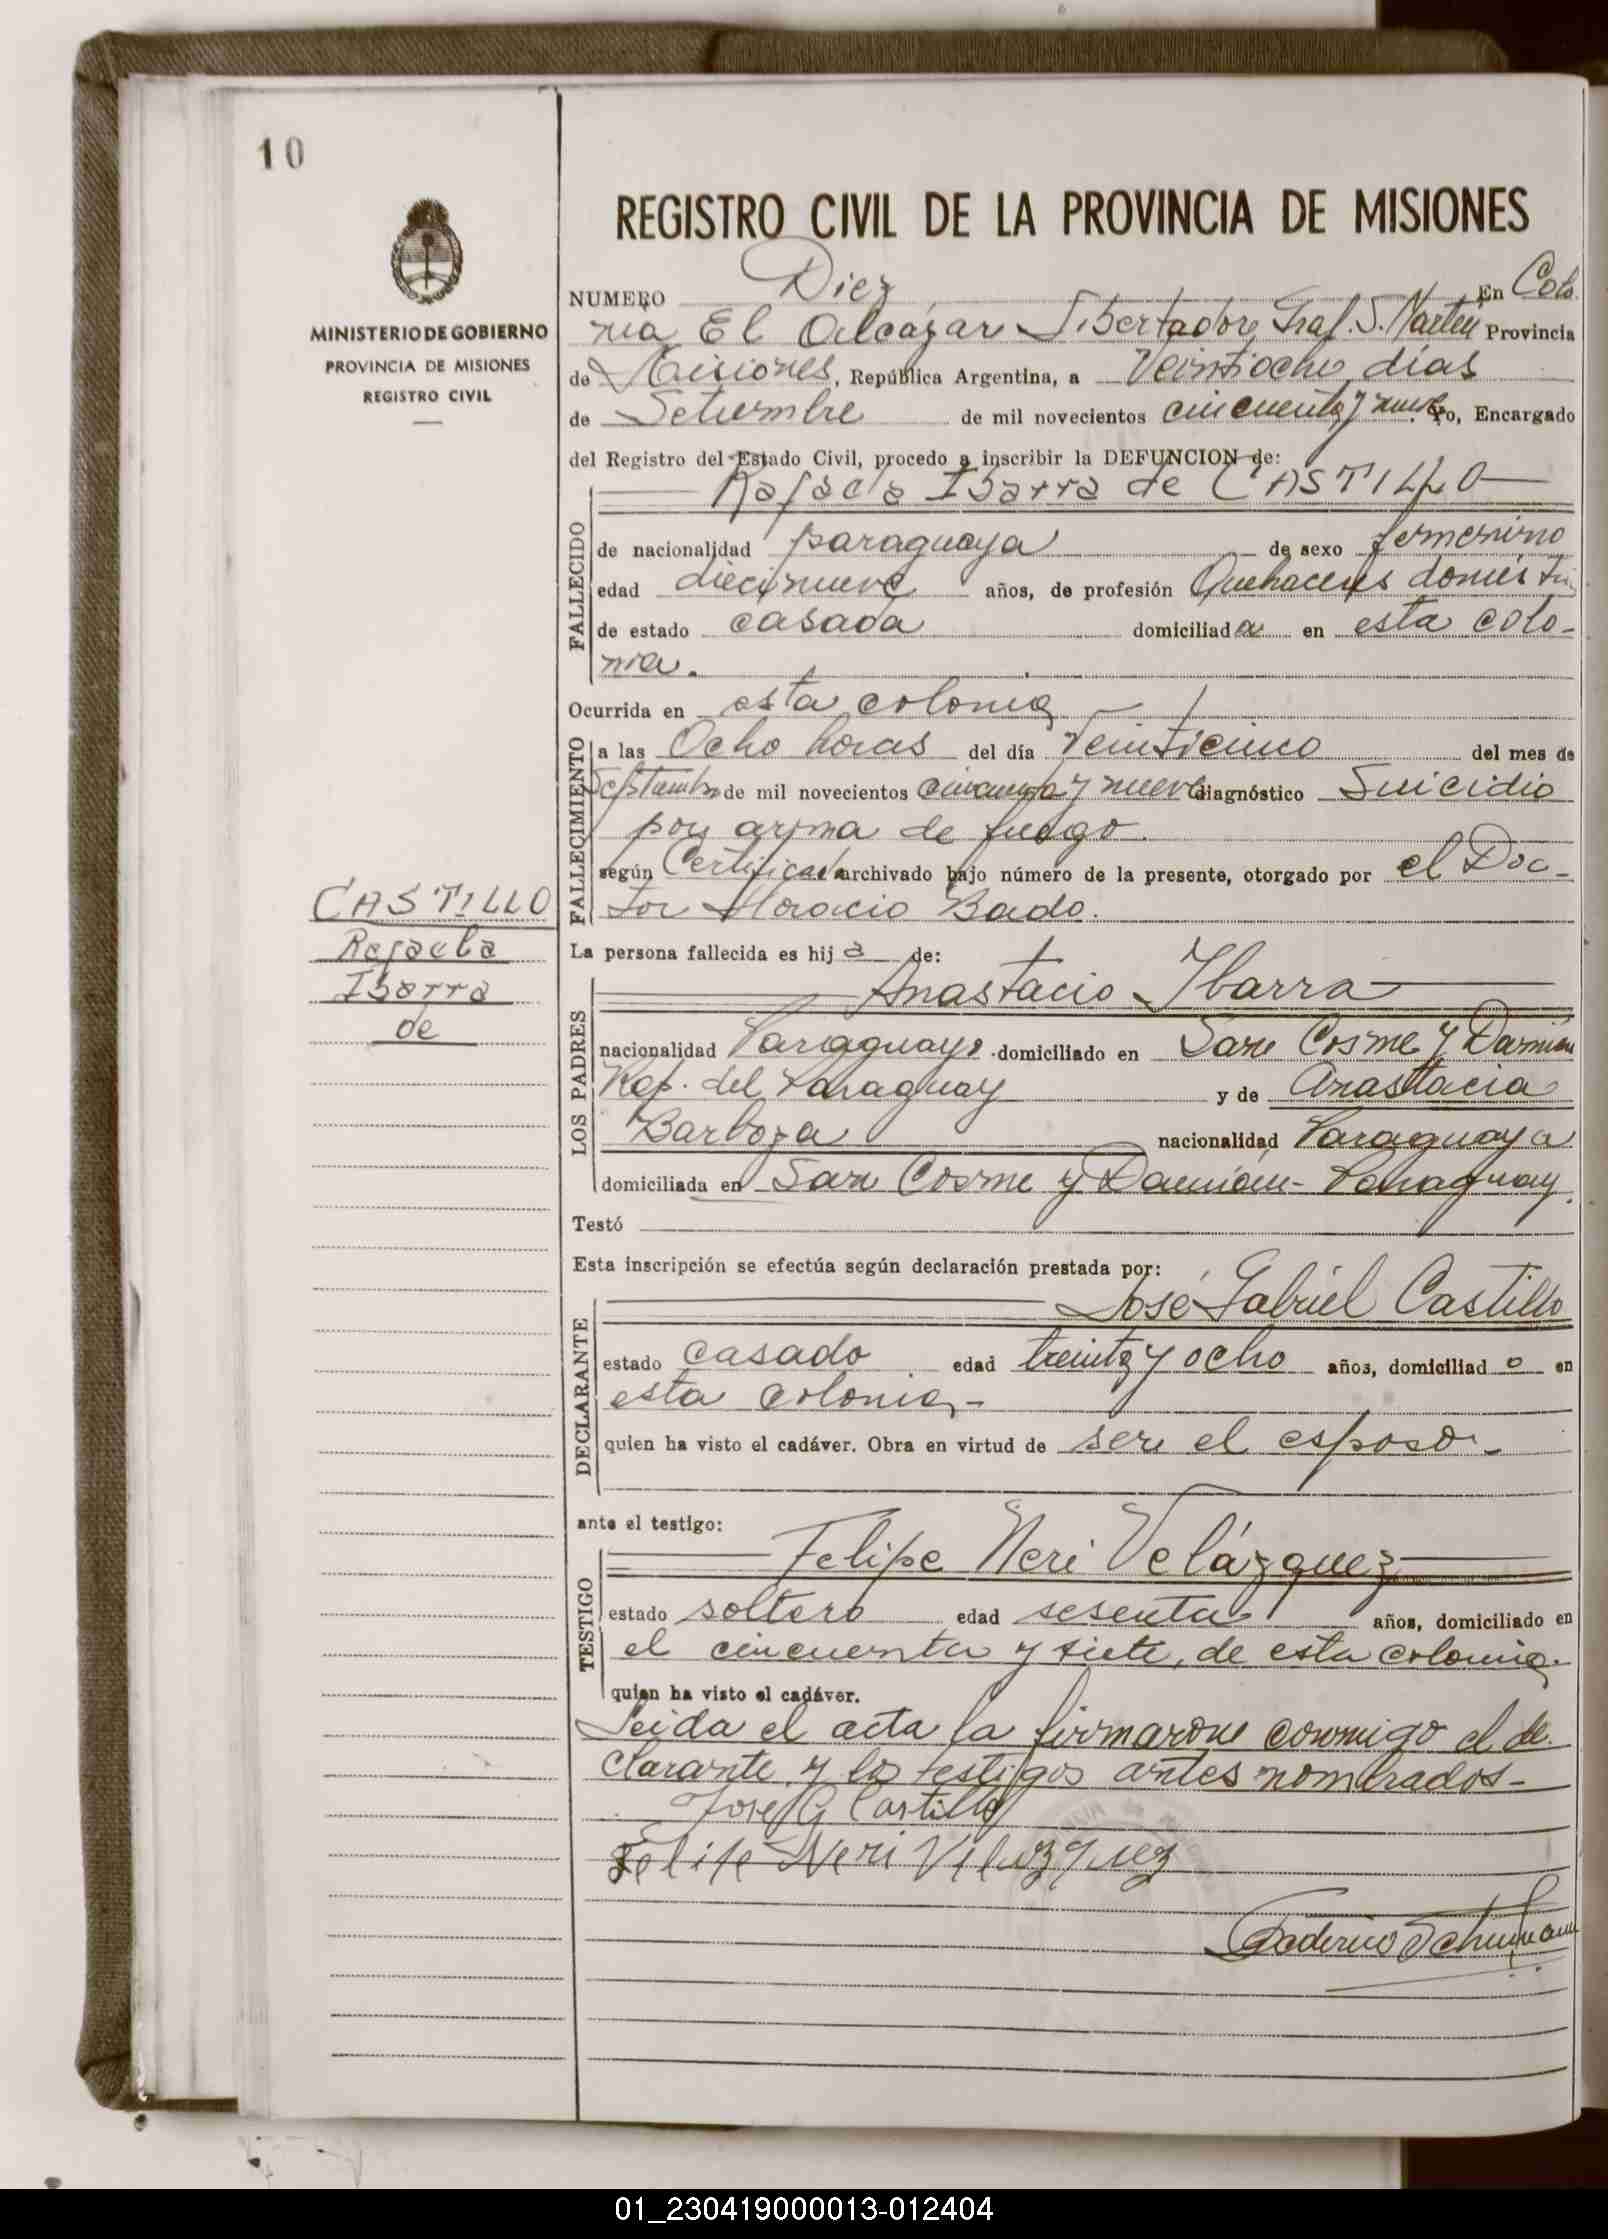 10
MINISTERIO DE GOBIERNO
PROVINCIA DE MISIONES
REGISTRO CIVIL
CASTILLO
Rafaela
Ibarra
de
REGISTRO CIVIL DE LA PROVINCIA DE MISIONES
NUMERO Diez En Colo
nia El Alcázar Libertador Gral. S. Martin Provincia
de Misiones, República Argentina, a Veintiocho días
de Setiembre de mil novecientos cincuenta y nueve. Yo, Encargado
del Registro del Estado Civil, procedo a inscribir la DEFUNCION de:
Rafaela Ibarra de CASTILLO
FALLECIDO
de nacionalidad paraguaya de sexo femenino
edad diecinueve años, de profesión Quehaceres domésti
de estado casada domiciliada en esta colo-
nia.
Ocurrida en esta colonia
FALLECIMIENTO
a las Ocho horas del día Veinticinco del mes de
Septiembre de mil novecientos cincuenta y nueve diagnóstico Suicidio
por arma de fuego.
según Certificado archivado bajo número de la presente, otorgado por el Doc-
tor Horacio Bado.
La persona fallecida es hija de:
LOS PADRES
Anastacio Ibarra
nacionalidad Paraguayo domiciliado en San Cosme y Damián
Rep. del Paraguay y de Anastacia
Barboza nacionalidad Paraguaya
domiciliada en San Cosme y Damián - Paraguay.
Testó
Esta inscripción se efectúa según declaración prestada por:
DECLARANTE
José Gabriel Castillo
estado casado edad treinta y ocho años, domiciliado en
esta colonia,-
quien ha visto el cadáver. Obra en virtud de ser el esposo.-
ante el testigo:
TESTIGO
Felipe Neri Velázquez
estado soltero edad sesenta años, domiciliado en
el cincuenta y siete, de esta colonia.
quien ha visto el cadáver.
Leida el acta la firmaron conmigo el de-
clarante y los testigos antes nombrados-
Jose G Castillo
Felipe Neri Velazquez
Federico
01_230419000013-012404